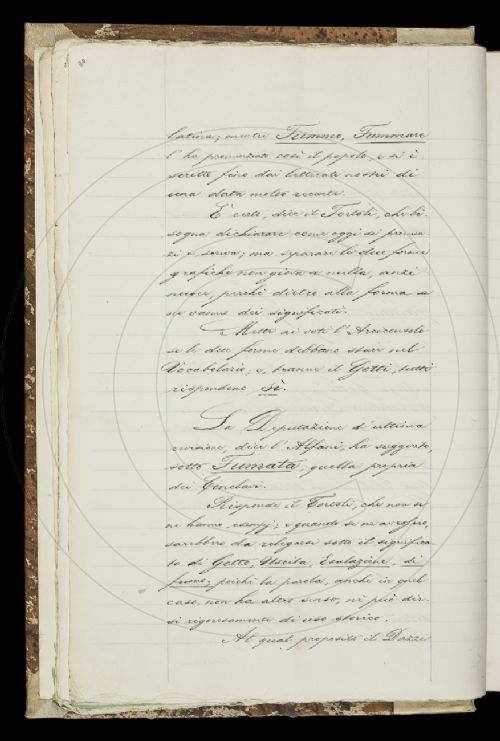 latina; mentre Fummo, Fummare
l'ha pronunziato così il popolo, e si è
scritto fino dai letterati nostri di
una data molto recente.
È certo, dice il Tortoli, che bi-
sogna dichiarare come oggi si pronun-
zi e scriva; ma separare le due forme
grafiche non giova a nulla, anzi
nuoce, perchè dietro alla forma se
ne vanno dei significati.
Mette ai voti l'Arciconsolo
se le due forme debbano stare nel
Vocabolario; e, tranne il Gotti, tutti
rispondono sì.
La Deputazione d'ultima
revisione, dice l'Alfani, ha suggerito,
sotto Fumata, quella propria
dei Conclavi.
Risponde il Tortoli, che non se
ne hanno esempj; e quando se n'avessero,
sarebbero da relegarsi sotto il significa-
to di Getto, Uscita, Esalazione, di
fumo; poichè la parola, anche in quel
caso, non ha altro senso, nè può dir-
si rigorosamente di uso storico.
Al qual proposito il Dazzi